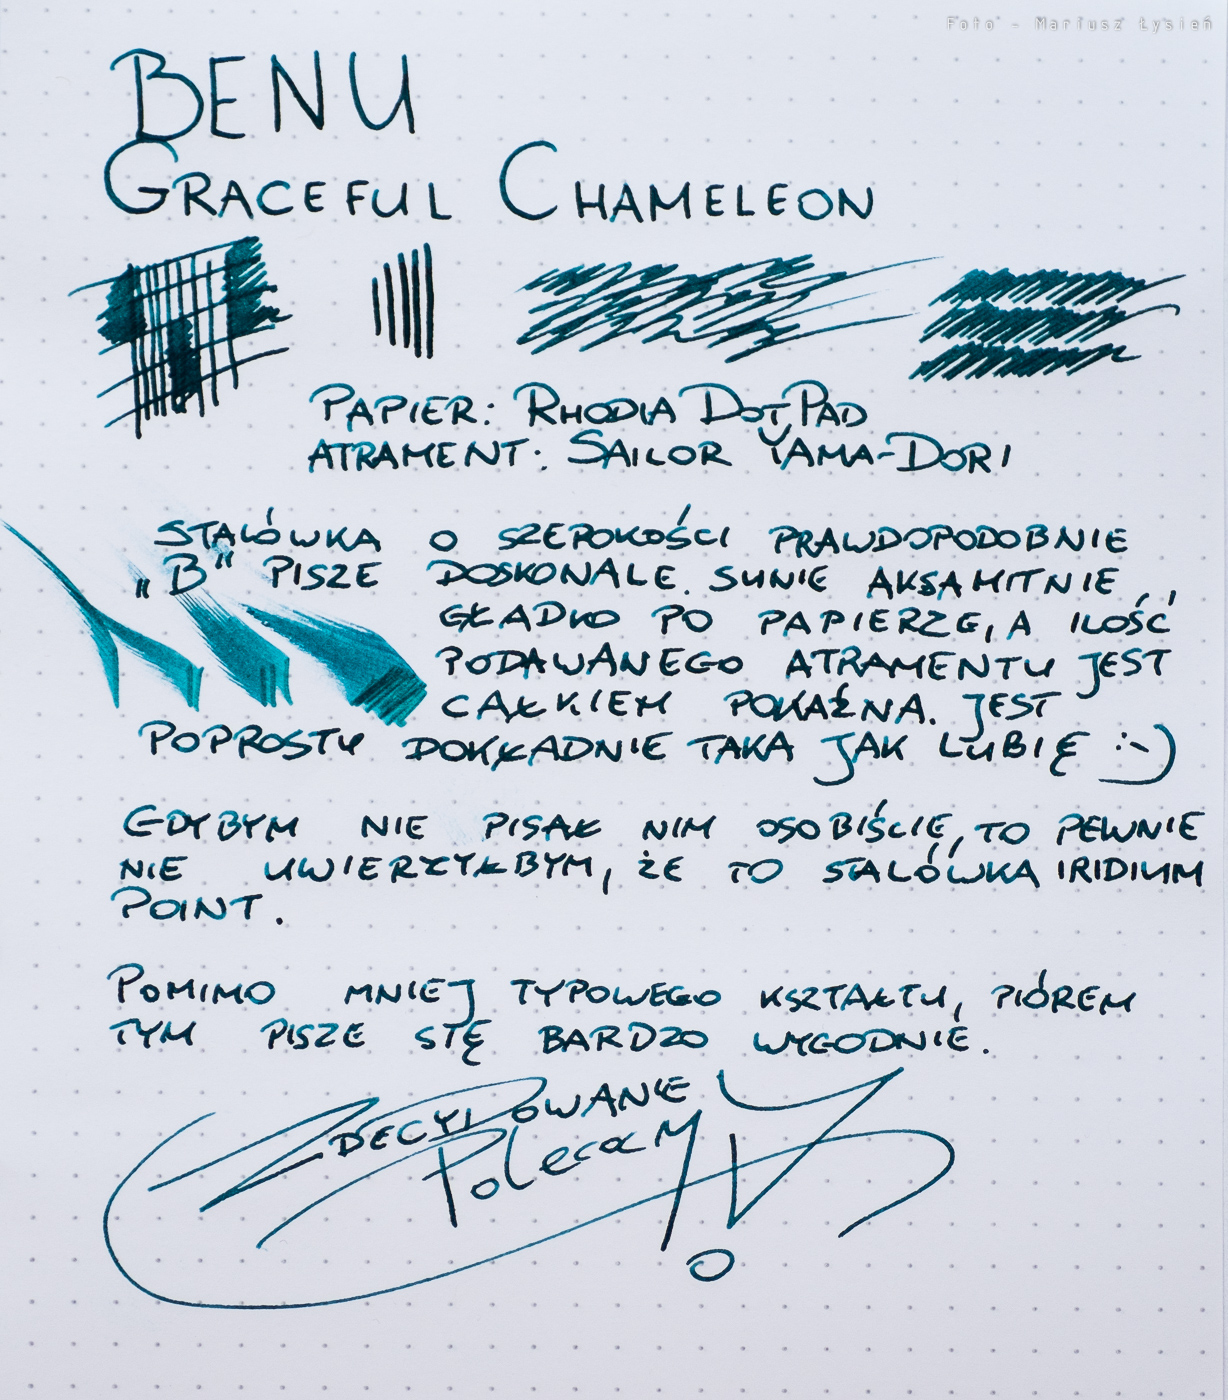 Foto - Mariusz Łysień
BENU
GRACEFUL CHAMELEON
PAPIER: RHODIA DOTPAD
ATRAMENT: SAILOR YAMA-DORI
STALÓWKA O SZEROKOŚCI PRAWDOPODOBNIE
„B" PISZE DOSKONALE. SUNIE AKSAMITNIE,
GŁADKO PO PAPIERZE, A ILOŚĆ
PODAWANEGO ATRAMENTU JEST
CAŁKIEM POKAŹNA. JEST
POPROSTU DOKŁADNIE TAKA JAK LUBIĘ :-)
GDYBYM NIE PISAŁ NIM OSOBIŚCIE, TO PEWNIE
NIE UWIERZYŁBYM, ŻE TO STALÓWKA IRIDIUM
POINT.
POMIMO MNIEJ TYPOWEGO KSZTAŁTU, PIÓREM
TYM PISZE SIĘ BARDZO WYGODNIE.
ZDECYDOWANIE
POLECAM!